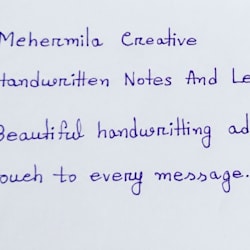 Mehermila Creative
Handwritten Notes And Le
Beautiful handwritting ad
ouch to every message.